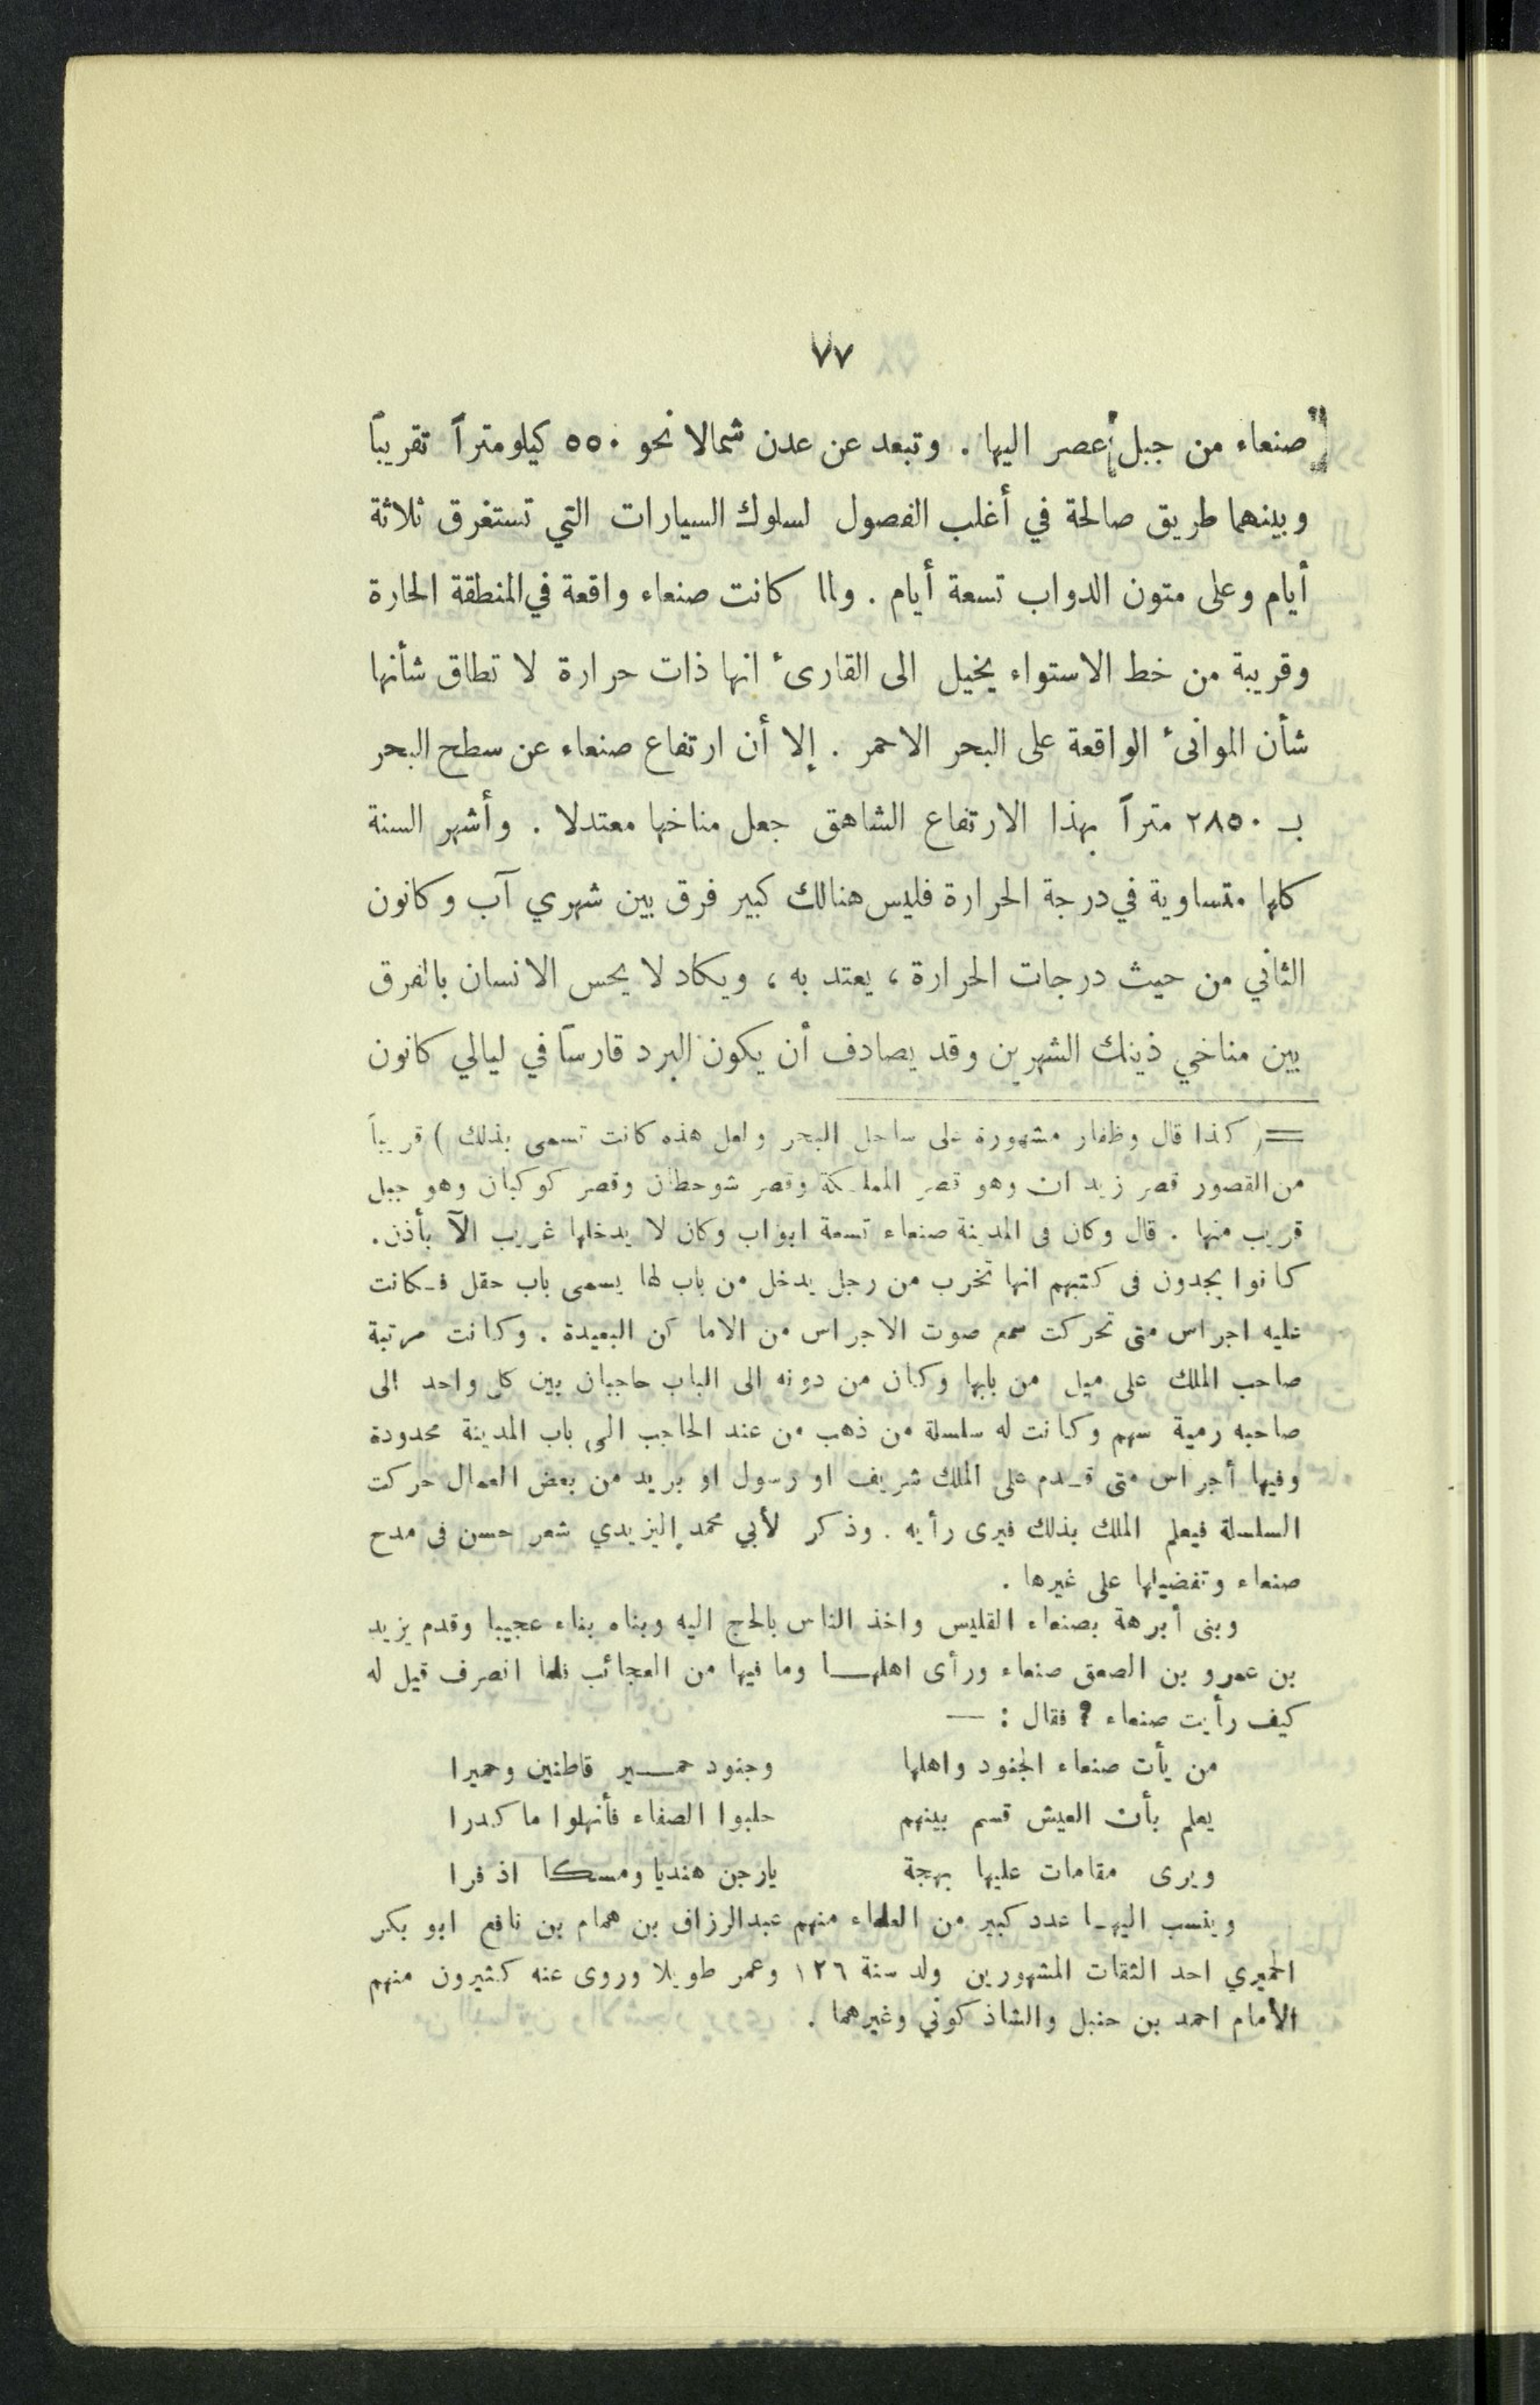 ٧٧
صنعاء من جبل عصر اليها . وتبعد عن عدن شمالا نحو ٥٥٠ كيلومتراً تقريباً
وبينهما طريق صالحة في أغلب الفصول لسلوك السيارات التي تستغرق ثلاثة
أيام وعلى متون الدواب تسعة أيام . ولما كانت صنعاء واقعة في المنطقة الحارة
وقريبة من خط الاستواء يخيل الى القارىء انها ذات حرارة لا تطاق شأنها
شأن الموانىء الواقعة على البحر الاحمر . إلا أن ارتفاع صنعاء عن سطح البحر
بـ ٢٨٥٠ متراً بهذا الارتفاع الشاهق جعل مناخها معتدلا . وأشهر السنة
كلها متساوية في درجة الحرارة فليس هنالك كبير فرق بين شهري آب وكانون
الثاني من حيث درجات الحرارة ، يعتد به ، ويكاد لا يحس الانسان بالفرق
بين مناخي ذينك الشهرين وقد يصادف أن يكون البرد قارساً في ليالي كانون
= ( كذا قال وظفار مشهورة على ساحل البحر ولعل هذه كانت تسمى بذلك ) قريباً
من القصور قصر زيدان وهو قصر المملكة وقصر شوحطان وقصر كوكبان وهو جبل
قريب منها . قال وكان فى المدينة صنعاء تسعة ابواب وكان لا يدخلها غريب الآ بأذن .
كانوا يجدون فى كتبهم انها تخرب من رجل يدخل من باب لها يسمى باب حقل فـكانت
عليه اجراس متى تحركت سمع صوت الاجراس من الاماكن البعيدة . وكانت مرتبة
صاحب الملك على ميل من بابها وكان من دونه الى الباب حاجبان بين كل واحد الى
صاحبه رمية سهم وكانت له سلسلة من ذهب من عند الحاجب الى باب المدينة ممدودة
وفيها أجراس متى قـدم على الملك شريف او رسول او بريد من بعض العمال حركت
السلسلة فيعلم الملك بذلك فيرى رأيه . وذكر لأبي محمد اليزيدي شعر حسن فى مدح
صنعاء وتفضيلها على غيرها .
وبنى أبرهة بصنعاء القليس واخذ الناس بالحج اليه وبناه بناء عجيبا وقدم يزيد
بن عمرو بن الصعق صنعاء ورأى اهلهـا وما فيها من العجائب فلما انصرف قيل له
كيف رأيت صنعاء ? فقال : —
من يأت صنعاء الجنود واهلها وجنود حمـير قاطنين وحميرا
يعلم بأن العيش قسم بينهم حلبوا الصفاء فأنهلوا ما كدرا
ويرى مقامات عليها بهجة يارجن هنديا ومسكا اذفرا
وينسب اليهـا عدد كبير من العلماء منهم عبدالرزاق بن همام بن نافع ابو بكر
الحميري احد الثقات المشهورين ولد سنة ١٢٦ وعمر طويلا وروى عنه كثيرون منهم
الأمام احمد بن حنبل والشاذكوني وغيرهما .